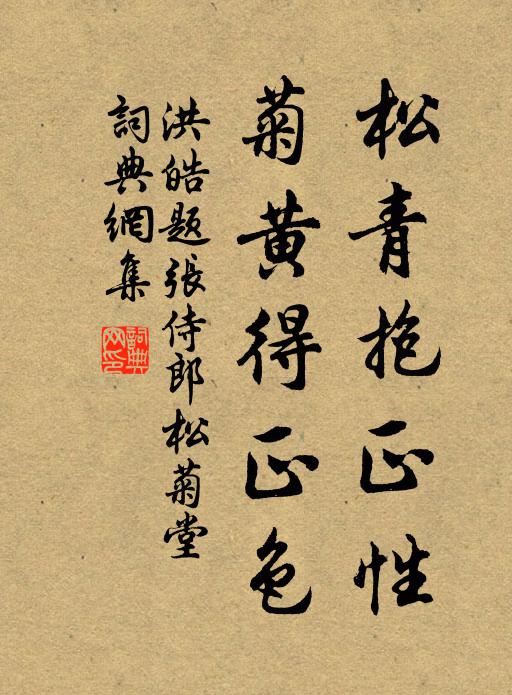 松青抱正性
菊黄得正色
洪皓题張侍郎松菊堂
詞典網集
詞典网印